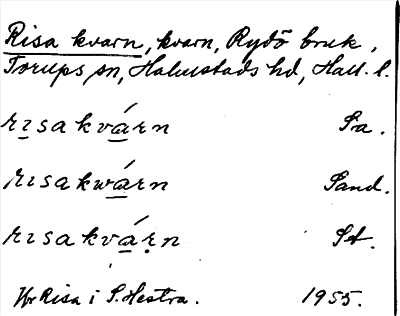 Risa kvarn, kvarn, Rydö bruk,
Torups sn, Halmstads hd, Hall. l.
rɩsakvárn Sa.
rɩsakwárn Sand.
rɩsakvárṇ St.
Hr Risa i S. Hestra. 1955.